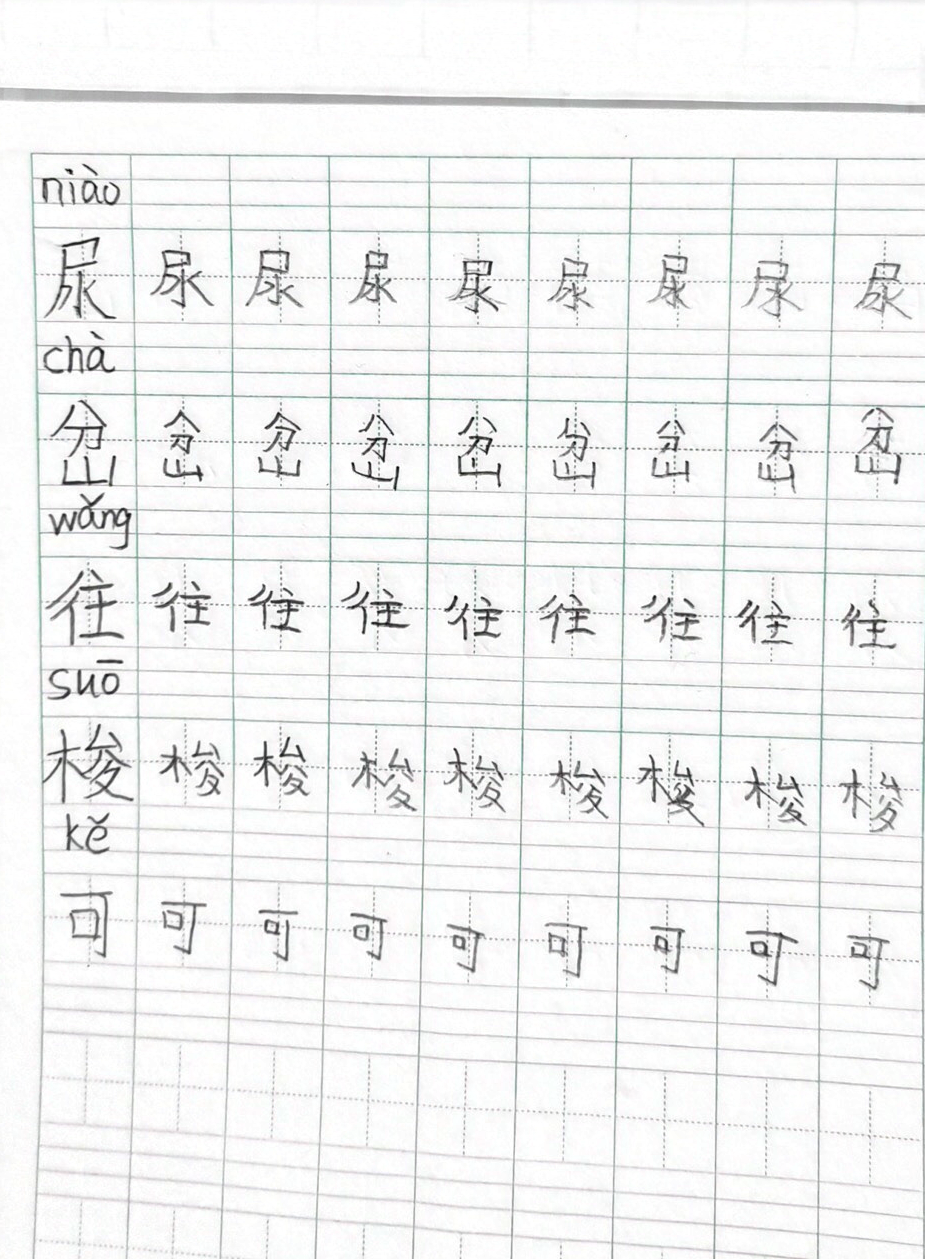 niào
尿 尿 尿 尿 尿 尿 尿 尿 尿
chà
岔 岔 岔 岔 岔 岔 岔 岔 岔
wǎng
往 往 往 往 往 往 往 往 往
suō
梭 梭 梭 梭 梭 梭 梭 梭 梭
kě
可 可 可 可 可 可 可 可 可